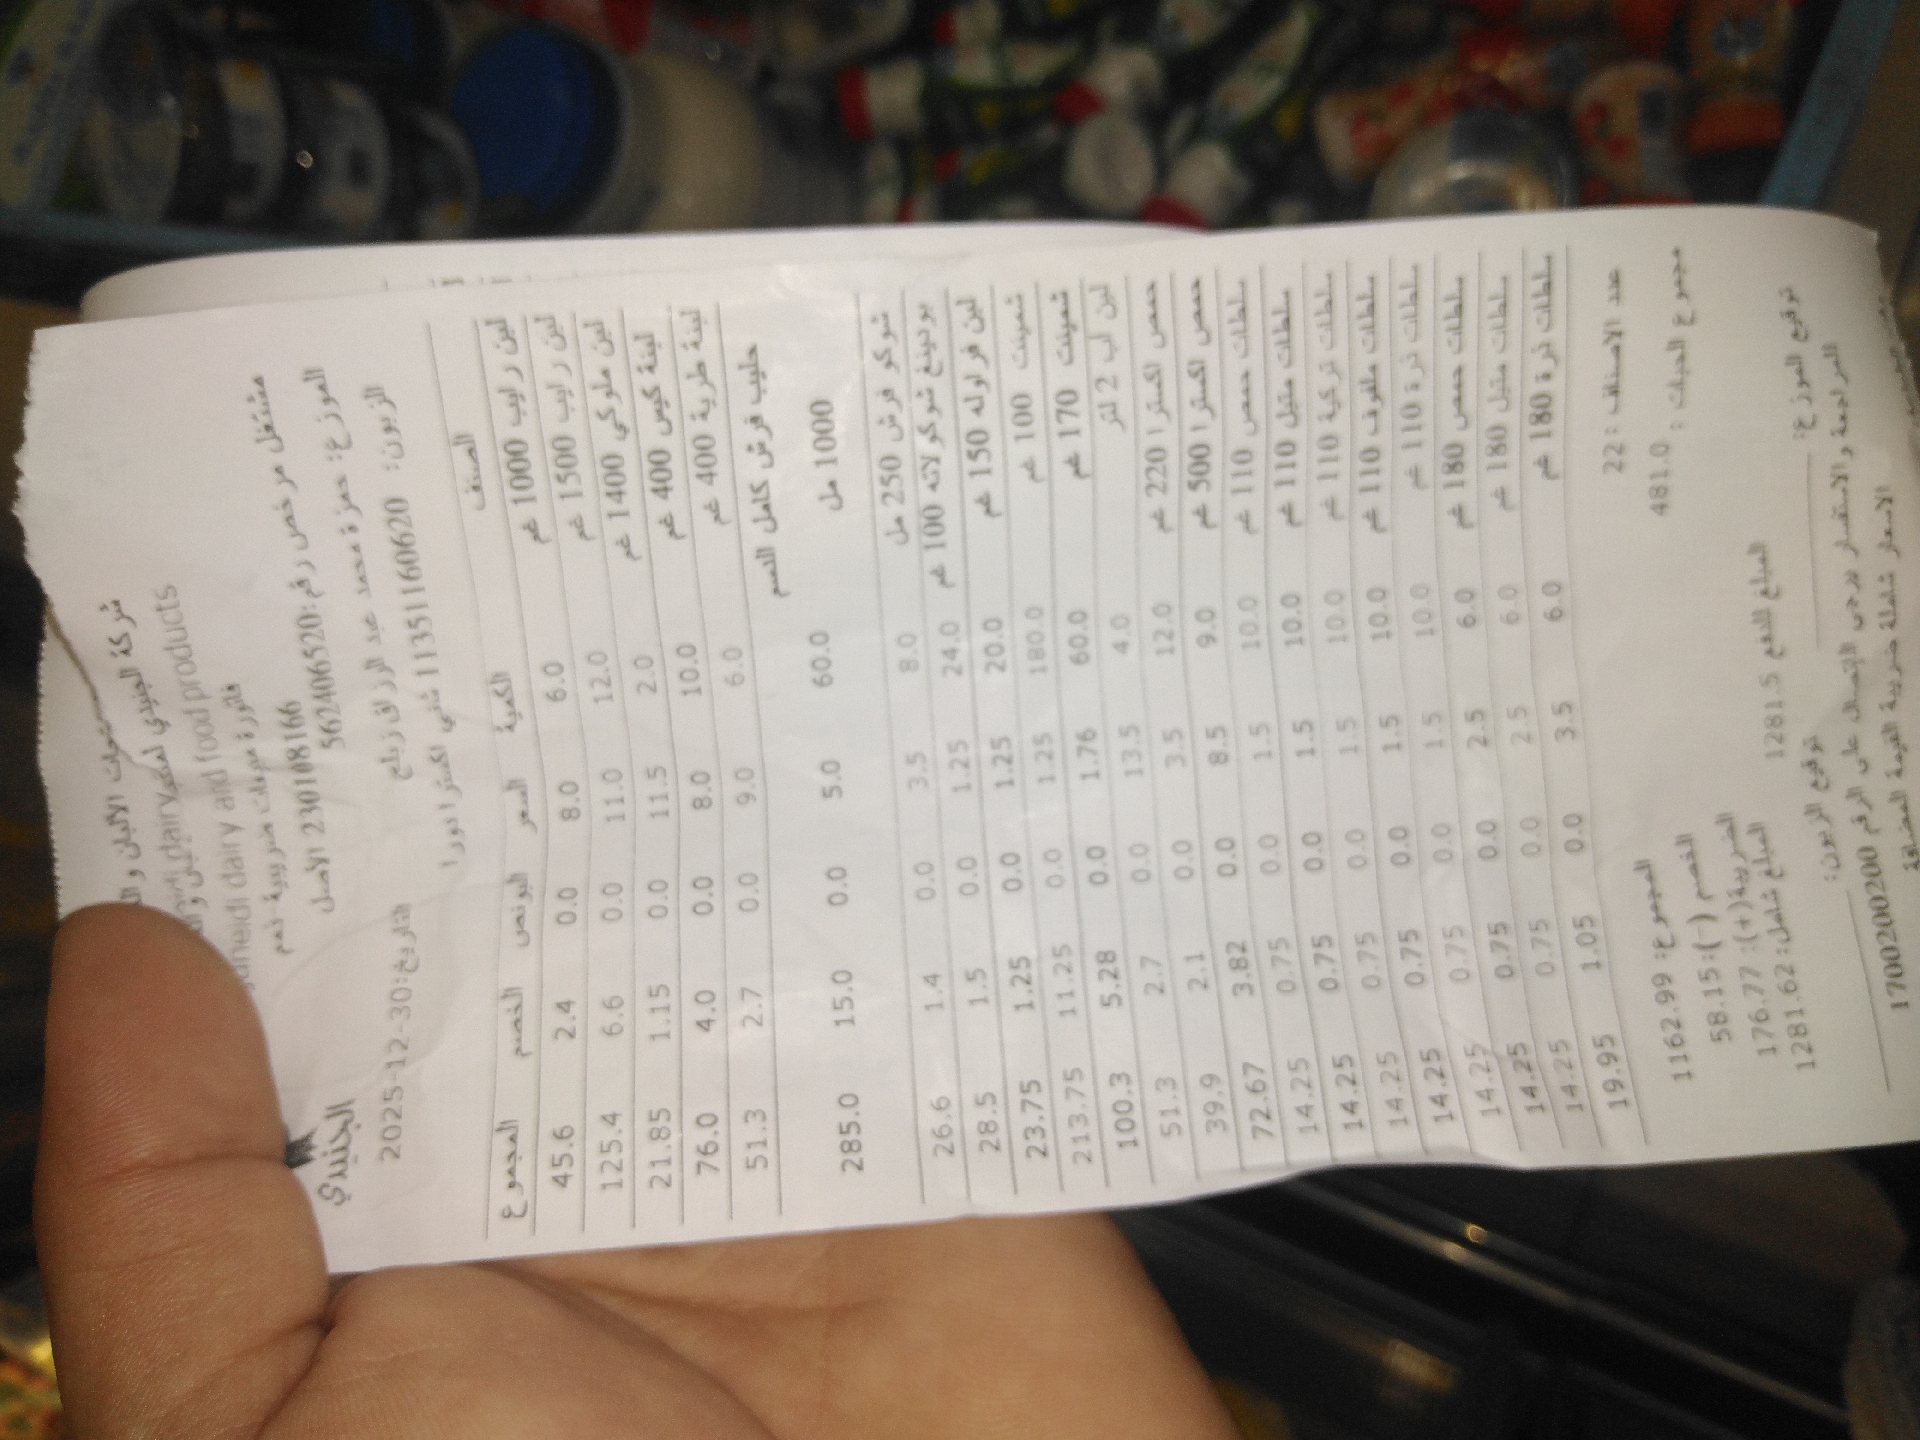 شركة الجنيدي لمنتجات الألبان و
dairy and food products
فاتورة مبيعات ضريبية ذمم
مشتغل مرخص رقم:562406520
230108166 الاصل
الموزع: حمزة محمد عبد الرزاق رباح
الزبون: 11351160620 شني اكسترا دورا
الجنيدي
التاريخ:2025-12-30
الصنف الكمية السعر البونص الخصم المجموع
لبن رايب 1000 غم 6.0 8.0 0.0 2.4 45.6
لبن رايب 1500 غم 12.0 11.0 0.0 6.6 125.4
لبن ملوكي 1400 غم 2.0 11.5 0.0 1.15 21.85
لبنة كيس 400 غم 10.0 8.0 0.0 4.0 76.0
لبنة طرية 400 غم 6.0 9.0 0.0 2.7 51.3
حليب فرش كامل الدسم
1000 مل 60.0 5.0 0.0 15.0 285.0
شوكو فرش 250 مل 8.0 3.5 0.0 1.4 26.6
بودينغ شوكولاته 100 غم 24.0 1.25 0.0 1.5 28.5
لبن فراوله 150 غم 20.0 1.25 0.0 1.25 23.75
شمينت 100 غم 180.0 1.25 0.0 11.25 213.75
شمينت 170 غم 60.0 1.76 0.0 5.28 100.3
لبن اب 2 لتر 4.0 13.5 0.0 2.7 51.3
حمص اكسترا 220 غم 12.0 3.5 0.0 2.1 39.9
حمص اكسترا 500 غم 9.0 8.5 0.0 3.82 72.67
سلطات حمص 110 غم 10.0 1.5 0.0 0.75 14.25
سلطات متبل 110 غم 10.0 1.5 0.0 0.75 14.25
سلطات تركية 110 غم 10.0 1.5 0.0 0.75 14.25
سلطات ملفوف 110 غم 10.0 1.5 0.0 0.75 14.25
سلطات ذرة 110 غم 10.0 1.5 0.0 0.75 14.25
سلطات حمص 180 غم 6.0 2.5 0.0 0.75 14.25
سلطات متبل 180 غم 6.0 2.5 0.0 0.75 14.25
سلطات ذرة 180 غم 6.0 3.5 0.0 1.05 19.95
عدد الاصناف : 22
مجموع الحبات : 481.0
المجموع: 1162.99
الخصم (-): 58.15
الضريبة(+): 176.77
المبلغ شامل: 1281.62
المبلغ للدفع 1281.5
توقيع الموزع:
توقيع الزبون:
للمراجعة والاستفسار يرجى الاتصال على الرقم 1700200200
الاسعار شاملة ضريبة القيمة المضافة